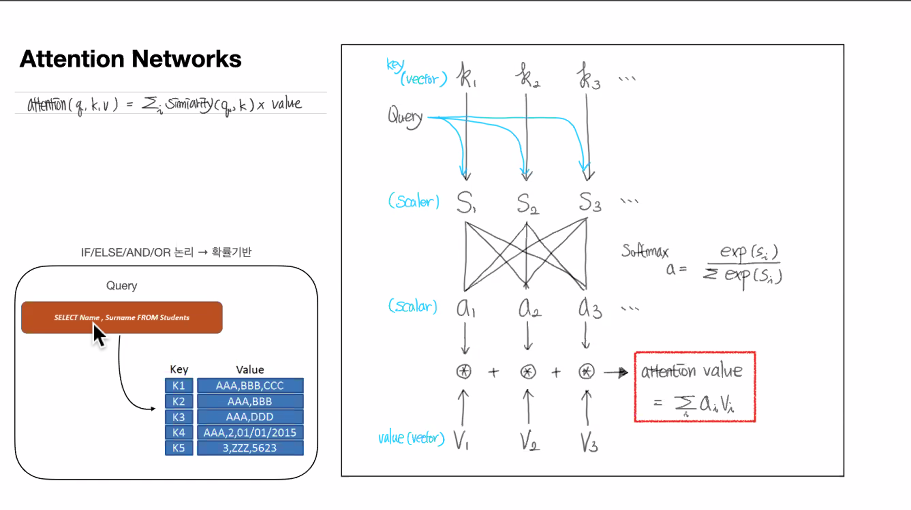 Attention Networks
attention(q, k, v) = Σᵢ Similarity(q, k) × value
IF/ELSE/AND/OR 논리 → 확률기반
Query
SELECT Name , Surname FROM Students
Key Value
K1 AAA,BBB,CCC
K2 AAA,BBB
K3 AAA,DDD
K4 AAA,2,01/01/2015
K5 3,ZZZ,5623
key (vector) k₁ k₂ k₃ ...
Query
(scaler) S₁ S₂ S₃ ...
Softmax a = exp(sᵢ) / Σ exp(sᵢ)
(scalar) a₁ a₂ a₃ ...
⊛ + ⊛ + ⊛ → attention value
= Σᵢ aᵢVᵢ
value (vector) V₁ V₂ V₃